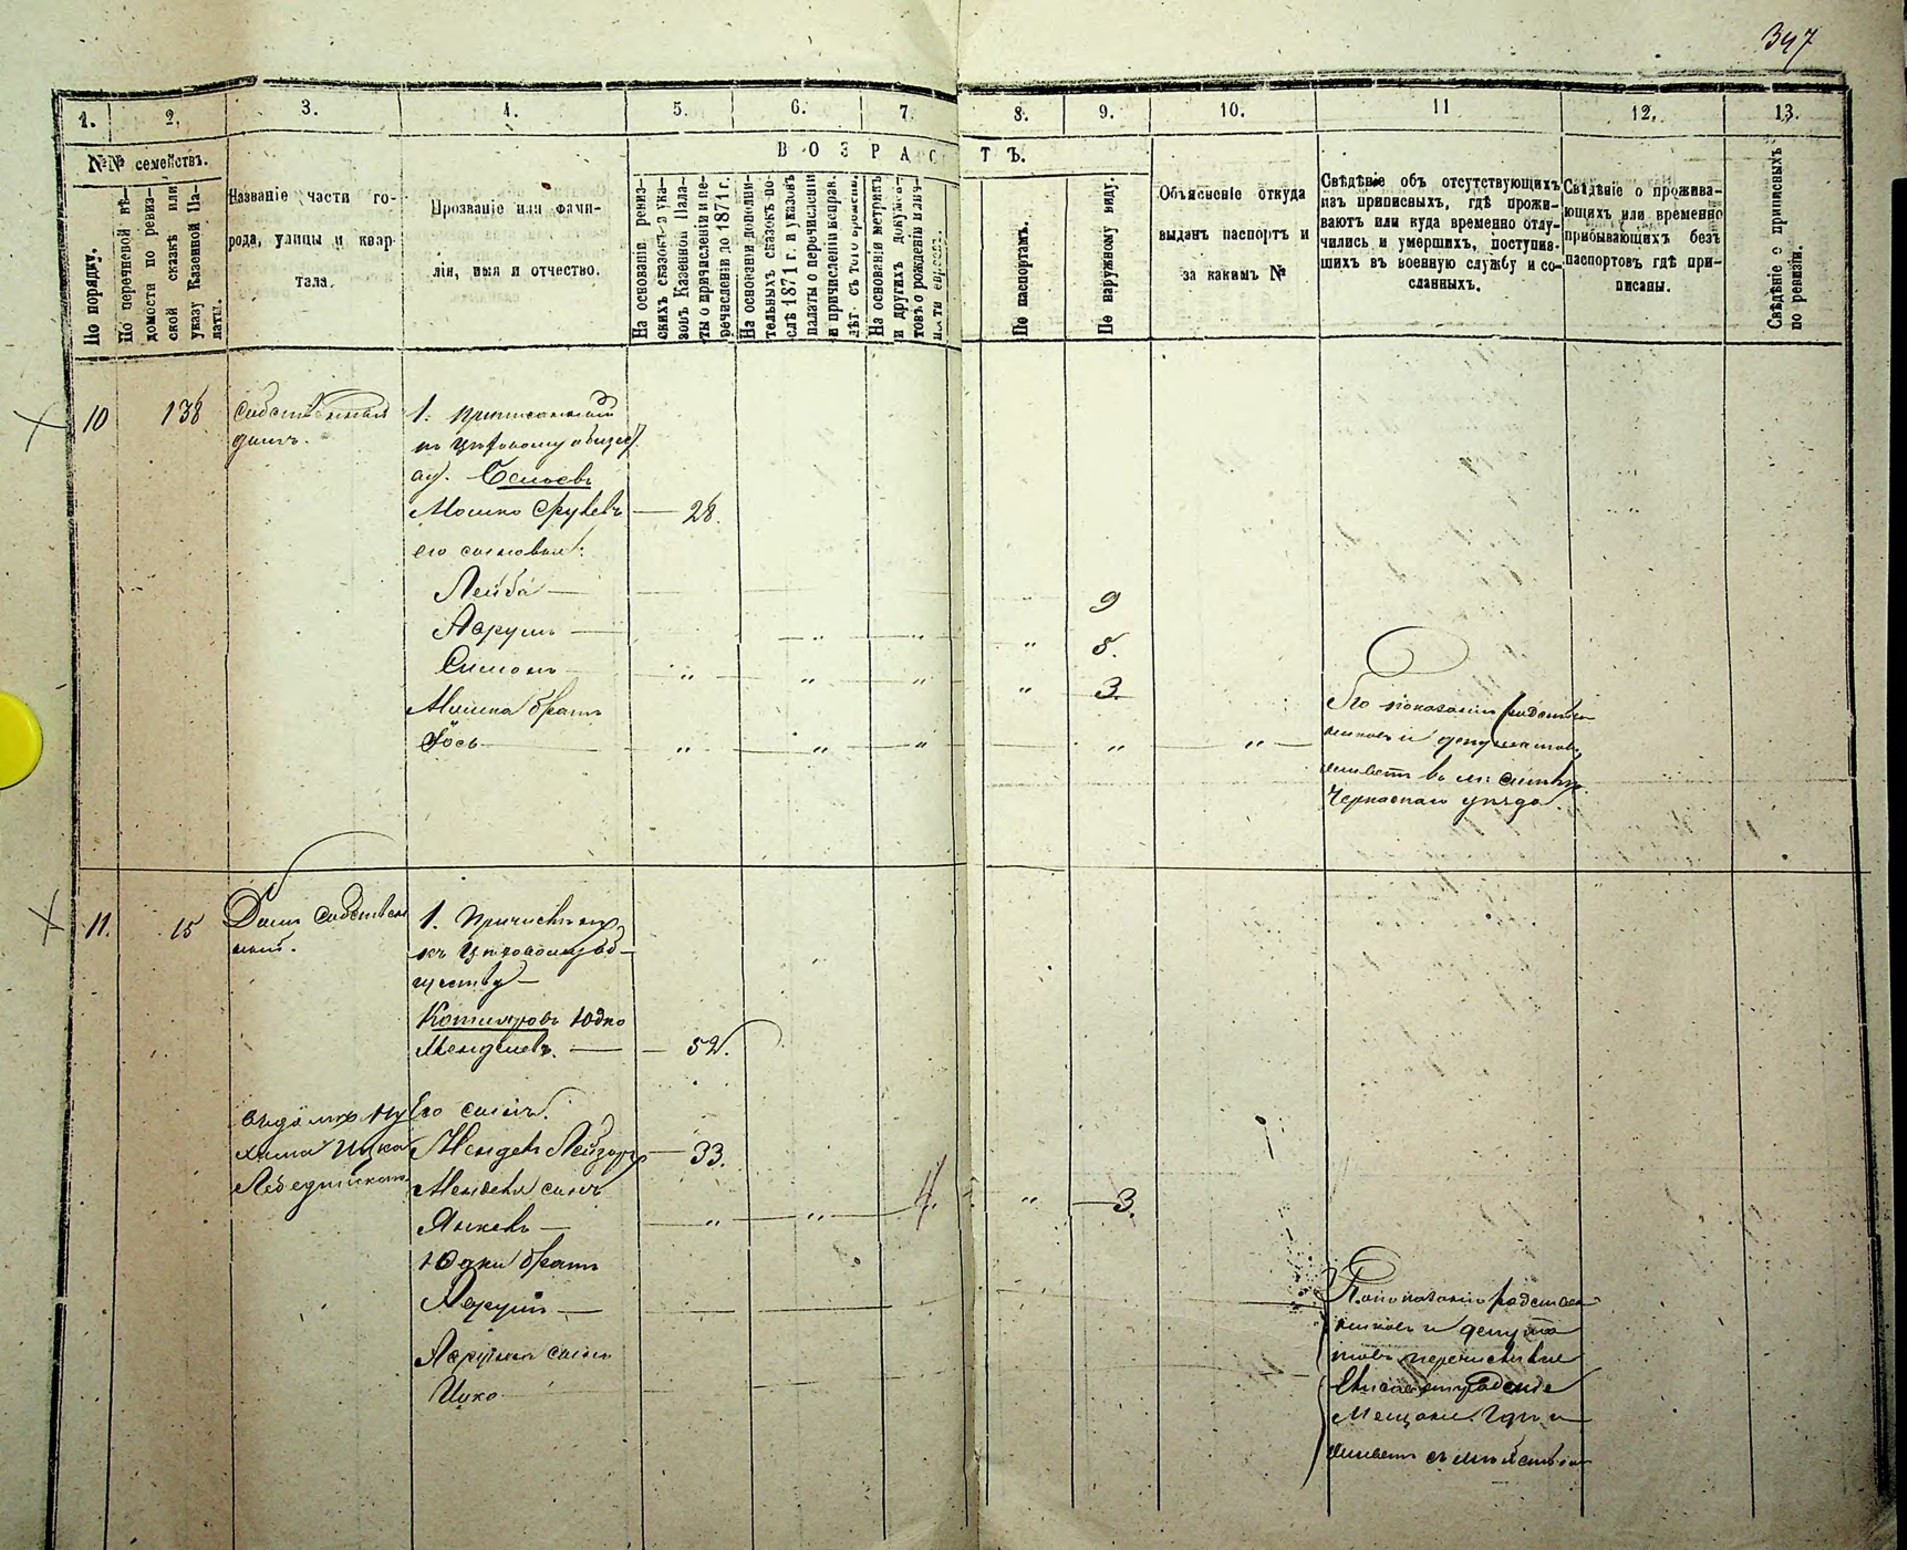 397
1. 2. 3. 4. 5. 6. 7. 8. 9. 10. 11 12. 13.
№№ семействъ.
В О З Р А С Т Ъ.
По порядку.
По перечневой вѣ-
домости по ревиз-
ской сказкѣ или
указу Казенной Па-
латы.
Названіе части го-
рода, улицы и квар-
тала.
Прозваніе или фами-
лія, имя и отчество.
На основаніи ревиз-
скихъ сказокъ и ука-
зовъ Казенной Пала-
ты о причисленіи и пе-
речисленіи до 1871 г.
На основаніи дополни-
тельныхъ сказокъ по-
слѣ 1871 г. и указовъ
палаты о перечисленіи
и причисленіи неправ.
лѣт. съ того времени.
На основаніи метрикъ
и другихъ докумен-
товъ о рожденіи
По паспортамъ.
По наружному виду.
Объясненіе откуда
выданъ паспортъ и
за какимъ №
Свѣдѣніе объ отсутствующихъ
изъ приписныхъ, гдѣ прожи-
ваютъ или куда временно отлу-
чились и умершихъ, поступив-
шихъ въ военную службу и со-
сланныхъ.
Свѣдѣніе о прожива-
ющихъ или временно
прибывающихъ безъ
паспортовъ гдѣ при-
писаны.
Свѣдѣніе о приписныхъ
по ревизіи.
10 138
домъ.
1.
Мошко Сруль — 28.
его сыновья:
Лейба — 9
Аврумъ — 5.
Симонъ 3.
Мошка братъ
Іось
По показанію
и депутатовъ
живетъ въ м:
Черкаскаго уѣзда.
11. 15
Домъ собствен
ный.
1. Причисленъ
къ цеховому об-
ществу —
Котляровъ Юдко
Менделевъ. — 52.
Его сынъ.
Мендель Лейзоръ — 33.
Менделя сынъ
Янкель — 4. 3.
Юдки братъ
Аврумъ —
Аврума сынъ
Ицко
По показанію родствен
никовъ и депута
товъ перечислился
въ Елисаветградскіе
Мещане гдѣ и
живетъ съ семействомъ